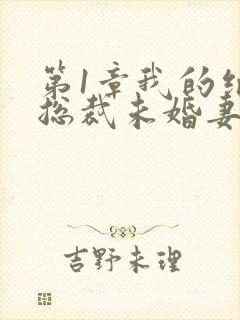 第1章我的
总裁未婚妻
吉野未理